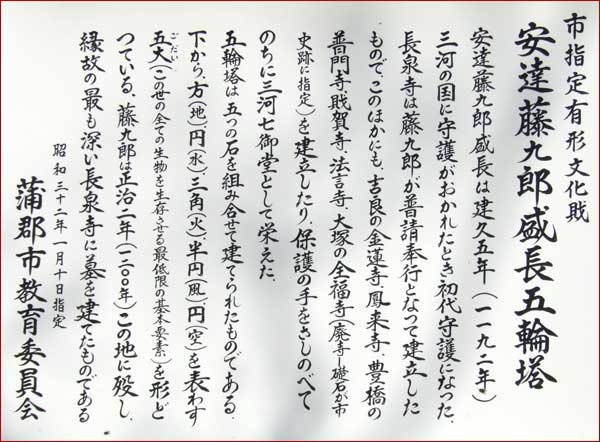 市指定有形文化財
安達藤九郎盛長五輪塔
安達藤九郎盛長は建久五年(一一九二年)
三河の国に守護がおかれたとき初代守護になった、
長泉寺は藤九郎が普請奉行となって建立した
もので、このほかにも、吉良の金蓮寺、鳳来寺、豊橋の
普門寺、財賀寺、法言寺、大塚の全福寺(廃寺・礎石が市
史跡に指定)を建立したり、保護の手をさしのべて
のちに三河七御堂として栄えた、
五輪塔は五つの石を組み合せて建てられたものである、
下から、方(地)、円(水)、三角(火)、半円(風)、円(空)を表わす
五大(この世の全ての生物を生存させる最低限の基本要素)を形ど
ごだい
っている、藤九郎は正治二年(一二〇〇年)この地に歿し、
縁故の最も深い長泉寺に墓を建てたものである
昭和三十二年一月十日指定
蒲郡市教育委員会